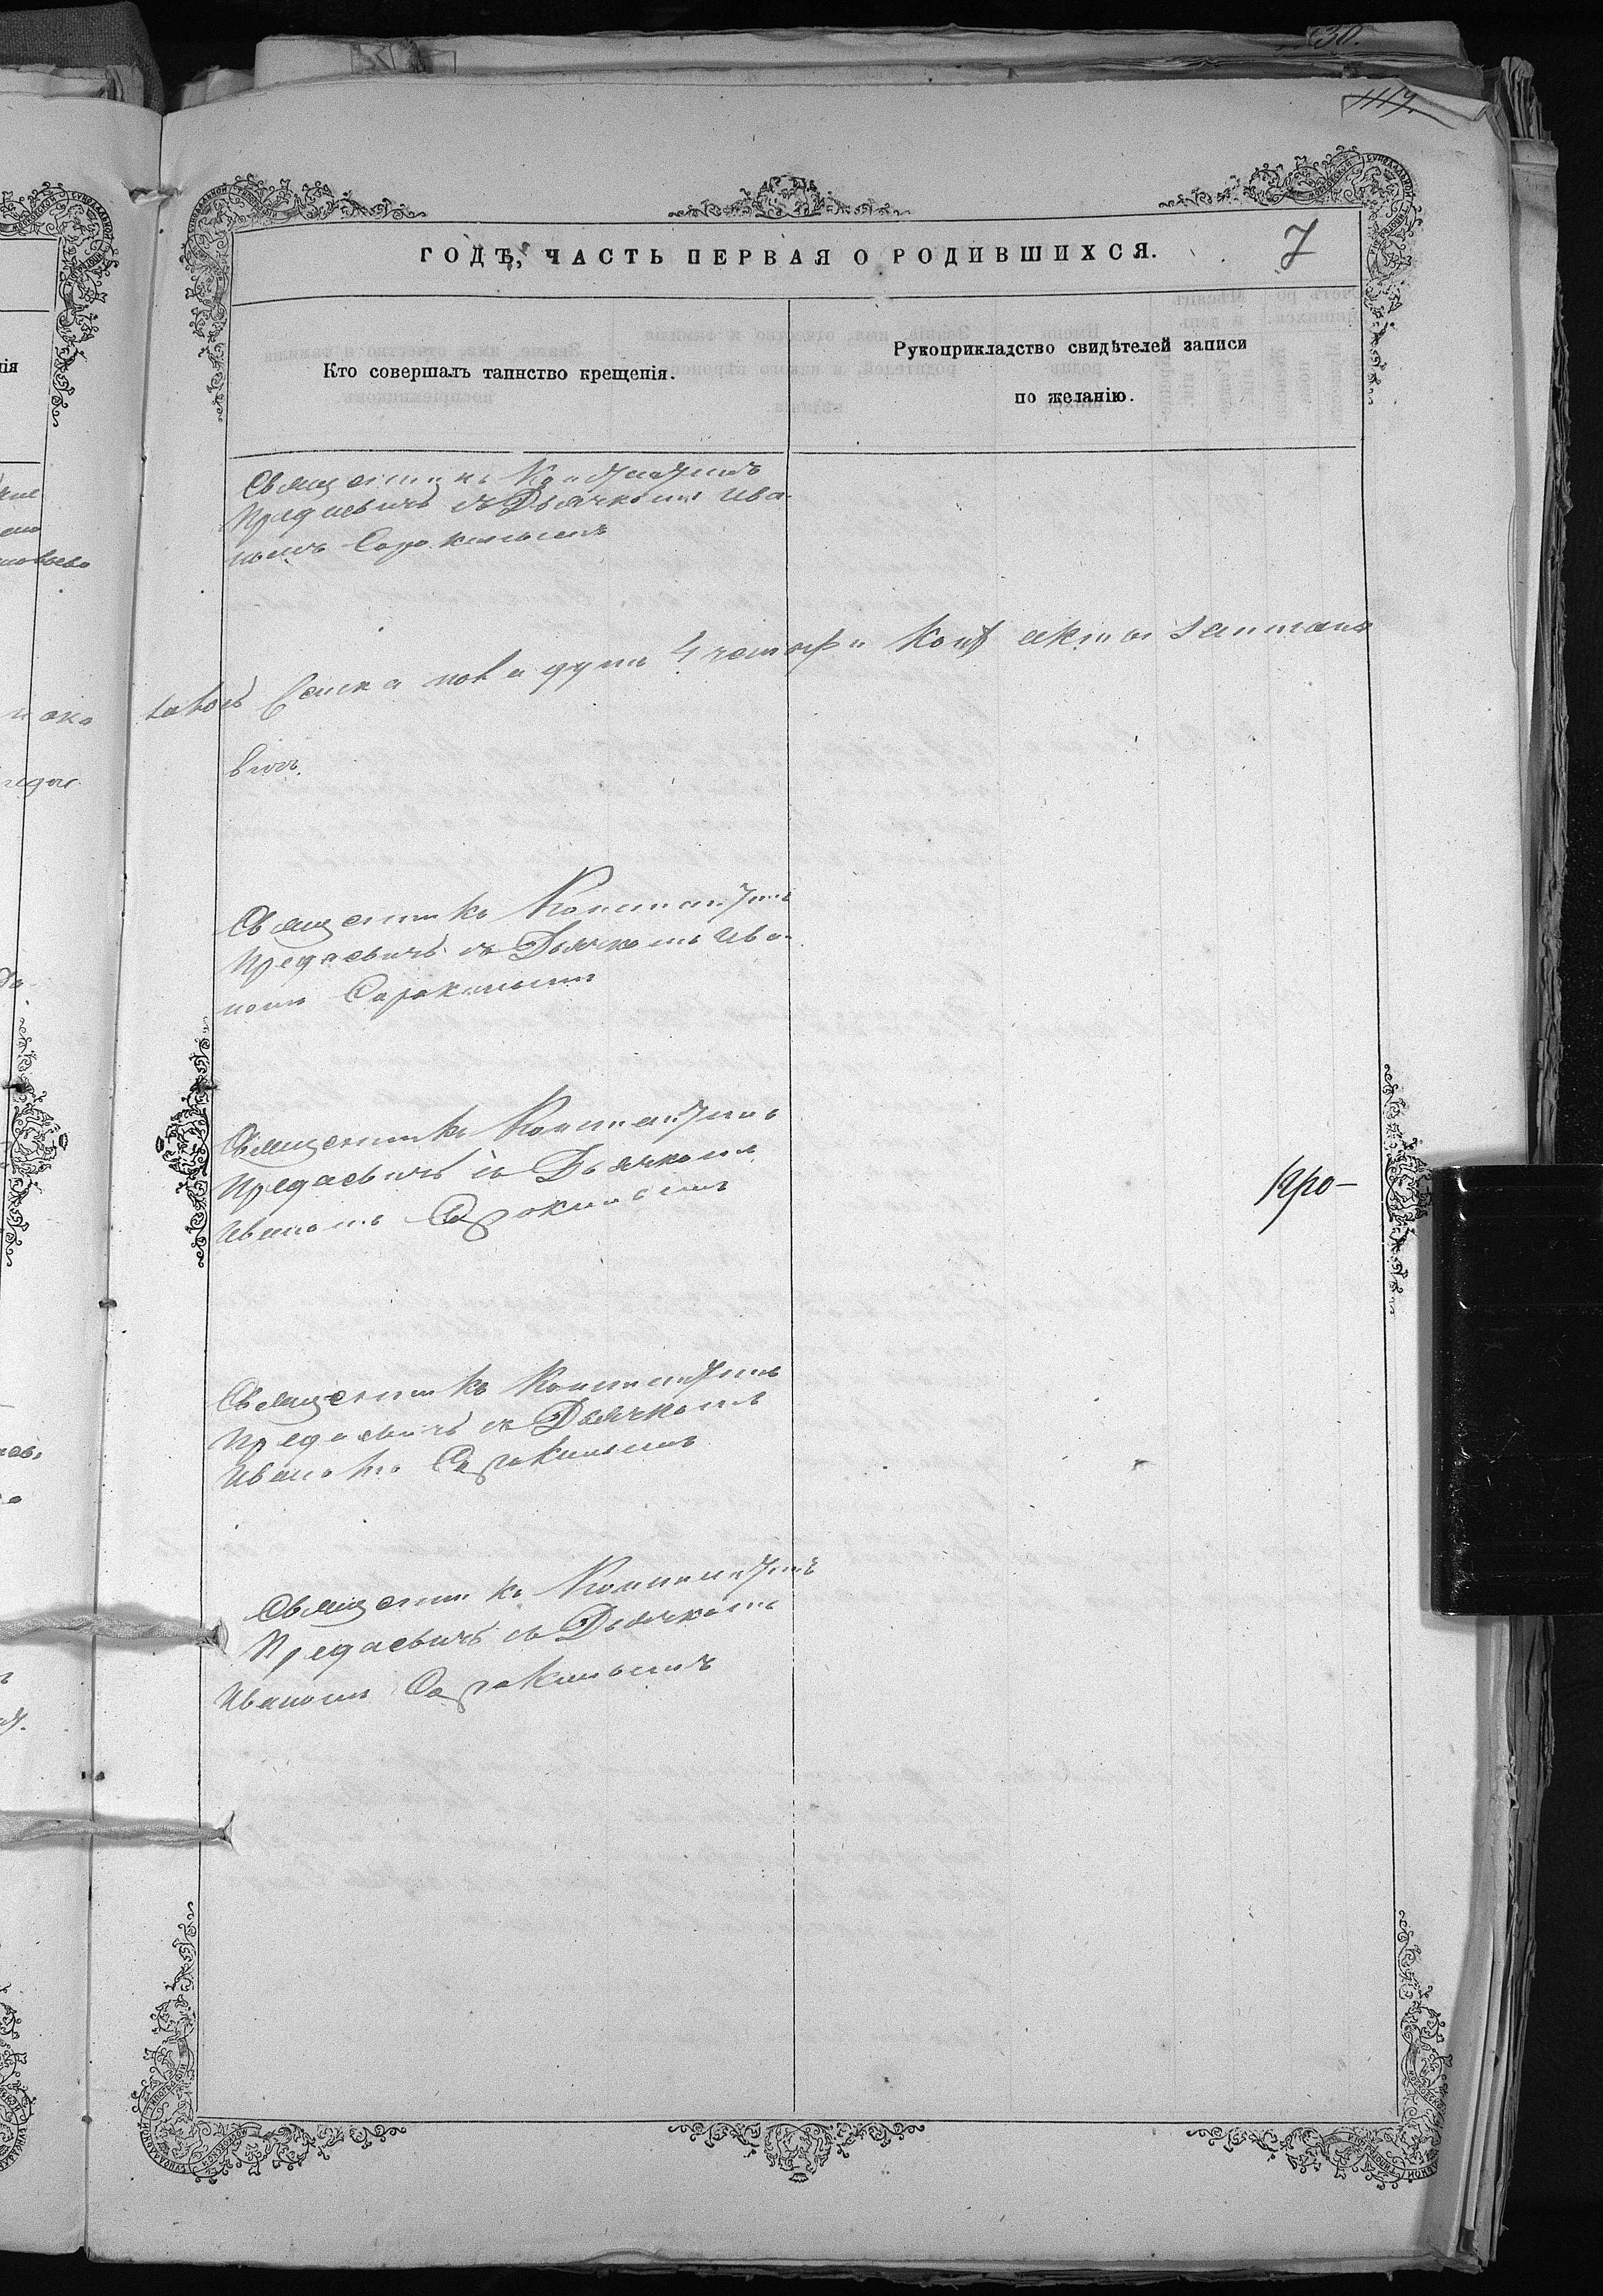 30.
1117.
ГОДѢ, ЧАСТЬ ПЕРВАЯ О РОДИВШИХСЯ.
7
Кто совершалъ таинство крещенія.
Рукоприкладство свидѣтелей записи
по желанію.
Священникъ Константинъ
Предаевичъ съ Дьячкомъ Ива-
номъ Сорокинымъ
4 акты записаны
Священникъ Константинъ
Предаевичъ съ Дьячкомъ Ива-
номъ Сорокинымъ
Священникъ Константинъ
Предаевичъ съ Дьячкомъ
Иваномъ Сорокинымъ
Кро-
Священникъ Константинъ
Предаевичъ съ Дьячкомъ
Иваномъ Сорокинымъ
Священникъ Константинъ
Предаевичъ съ Дьячкомъ
Иваномъ Сорокинымъ